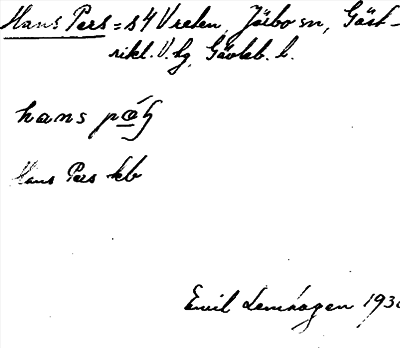 Hans Pers = s 4 Vreten, Järbo sn, Gäst-
rikl. V. tg, Gävleb. l.
hans pa̲ʃ
Hans Pers kb
Emil Lemhagen 193